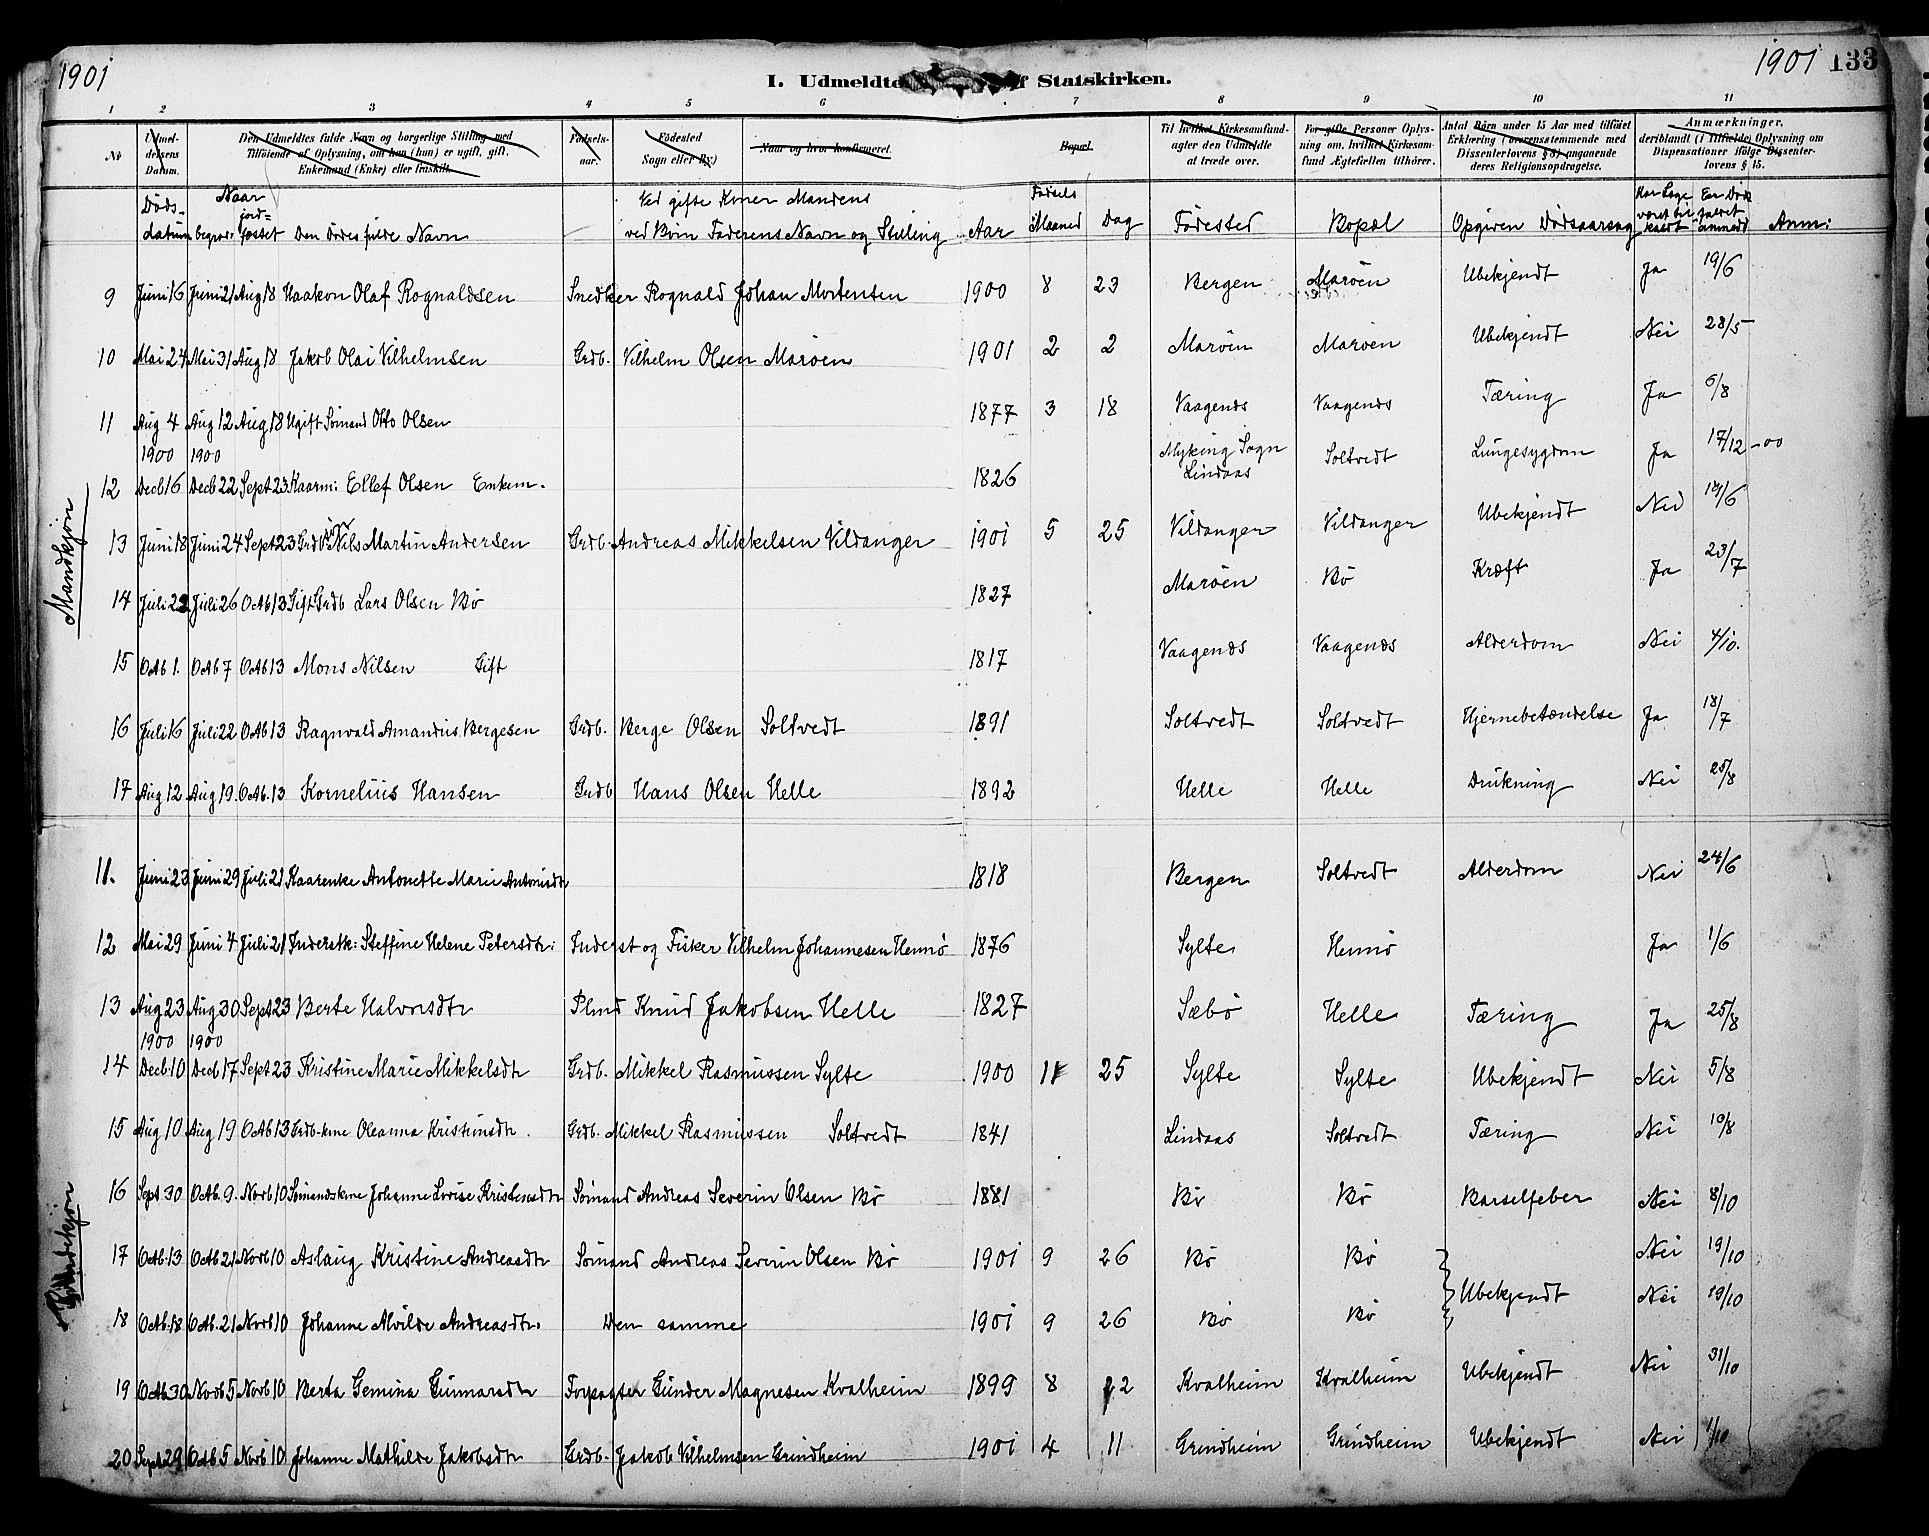 1901
1901 133
I. Udmeldte f Statskirken.
1 2 3 4 5 6 7 8 9 10 11
No
Udmel-
delsens
Datum.
Den Udmeldtes fulde Navn og borgerlige Stilling med
Tilføiende af Oplysning, om han (hun) er ugift, gift,
Enkemand (Enke) eller fraskilt.
Fødsels-
aar.
Fødested
Sogn eller By)
Naar og hvor konfirmeret.
Bopæl.
Til hvilket Kirkesamfund-
agter den Udmeldte
at træde over.
For gifte Personer Oplys-
ning om, hvilket Kirkesam-
fund Ægtefællen tilhører.
Antal Børn under 15 Aar med tilføiet
Erklæring (overensstemmende med
Dissenterlovens § 8) angaaende
deres Religionsopdragelse.
Anmærkninger,
deriblandt (i Tilfælde) Oplysning om
Dispensationer ifølge Dissenter-
lovens § 15.
Døds-
datum
Naar
begrav: jord=
fæstet
Den Dødes fulde Navn
Ved gifte Koner Mandens
ved Børn Faderens Navn og Stilling
Aar
Fødsels
Maaned
Dag
Fødested
Bopæl
Opgiven Dødsaarsag
Har Læge
været til
kaldt
Er Døds
faldet
anmeldt
Anm:
9 Juni 16 Juni 21 Aug 18 Haakon Olaf Rognaldsen Snedker Rognald Johan Mortensen 1900 8 23 Bergen Marøen Ubekjendt Ja 19/6
10 Mai 24 Mai 31 Aug 18 Jakob Olai Vilhelmsen Grdb. Vilhelm Olsen Marøen 1901 2 2 Marøen Marøen Ubekjendt Nei 28/5
11 Aug 4 Aug 12 Aug 18 Ugift Sømand Otto Olsen 1877 3 18 Vaagenes Vaagenes Tæring Ja 6/8
1900 1900
12 Decb 16 Decb 22 Sept 23 Kaarm: Ellef Olsen Enkem. 1826 Myking Sogn
Lindaas Soltvedt Lungesygdom Ja 17/12 -00
Mandkjøn
13 Juni 18 Juni 24 Sept 23 Grdb Nils Martin Andersen Grdb. Andreas Mikkelsen Vildanger 1901 5 25 Vildanger Vildanger Ubekjendt Nei 19/6
14 Juli 22 Juli 26 Octb 13 Gift Grdb Lars Olsen Bø 1827 Marøen Bø Kræft Ja 23/7
15 Octb 1. Octb 7 Octb 13 Mons Nilsen Gift 1817 Vaagenes Vaagenes Alderdom Nei 4/10.
16 Juli 16 Juli 22 Octb 13 Ragnvald Amandus Bergesen Grdb. Berge Olsen Soltvedt 1891 Soltvedt Soltvedt Hjernebetændelse Ja 18/7
17 Aug 12 Aug 19. Octb. 13 Kornelius Hansen Grdb Hans Olsen Helle 1892 Helle Helle Drukning Nei 25/8
11. Juni 23 Juni 29 Juli 21 Kaarenke Antonette Marie Antonisdtr 1818 Bergen Soltvedt Alderdom Nei 24/6
12 Mai 29 Juni 4 Juli 21 Inderstk: Steffine Helene Petersdtr: Inderst og Fisker Vilhelm Johannesen Hennø 1876 Sylte Hennø Ja 1/6
13 Aug 23 Aug 30 Sept 23 Berte Halvorsdtr Plmd Knud Jakobsen Helle 1827 Sæbø Helle Tæring Ja 25/8
1900 1900
14 Decb. 10 Decb 17 Sept 23 Kristine Marie Mikkelsdtr Grdb. Mikkel Rasmussen Sylte 1900 11 25 Sylte Sylte Ubekjendt Nei 5/8
15 Aug 10 Aug 19 Octb 13 Grdb-kone Oleanna Kristensdtr. Grdb. Mikkel Rasmussen Soltvedt 1841 Lindaas Soltvedt Tæring Nei 19/8
Kvindekjøn
16 Sept. 30 Octb. 9. Novb 10 Sømandskone Johanne Lovise Kristensdtr Sømand Andreas Severin Olsen Bø 1881 Bø Bø Barselfeber Nei 8/10
17 Octb. 13 Octb 21 Novb 10 Aslaug Kristine Andreasdtr Sømand Andreas Severin Olsen Bø 1901 9 26 Bø Bø Nei 19/10
Ubekjendt
18 Octb. 18 Octb. 21 Novb 10 Johanne Alvilde Andreasdtr. Den samme 1901 9 26 Bø Bø Nei 19/10
19 Octb 30 Novb 5 Novb 10 Berta Gemina Gunnarsdtr Forpagter Gunder Magnesen Kvalheim 1899 8 12 Kvalheim Kvalheim Ubekjendt Nei 31/10
20 Sept 29 Octb 5 Novb 10 Johanne Mathilde Jakobsdtr Grdb. Jakob Vilhelmsen Grindheim 1901 4 11 Grindheim Grindheim Ubekjendt Nei 1/10